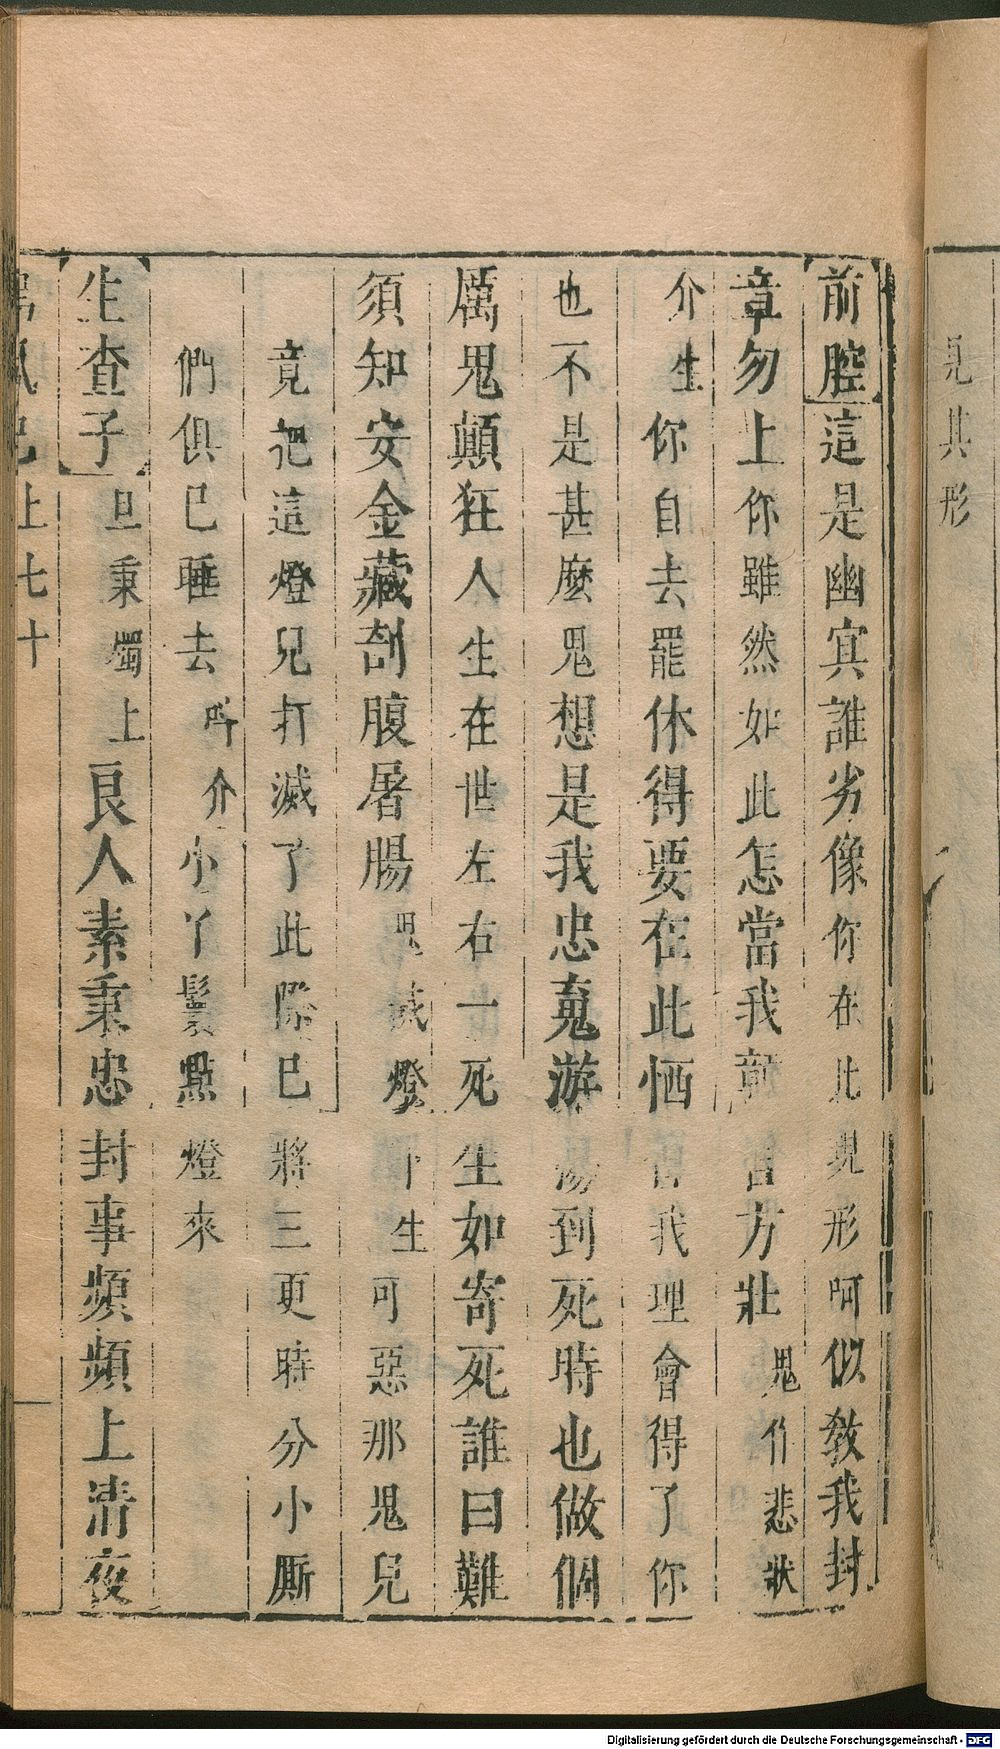 見其形
前腔這是幽冥誰劣像你在此現形呵似教我封
章勿上你雖然如此怎當我章官方壯鬼作悲狀
介生你自去罷休得要在此恓我理會得了你
也不是甚麼鬼想是我忠䰟游到死時也做個
厲鬼顛狂人生在世左右一死生如寄死誰曰難
須知安金藏剖腹屠腸鬼滅燈下生可惡那鬼兒
竟把這燈兒打滅了此際已將三更時分小厮
們俱已睡去呌介小丫鬟點燈來
生查子旦秉燭上良人素秉忠封事頻頻上清夜
上七十
Digitalisierung gefördert durch die Deutsche Forschungsgemeinschaft - DFG